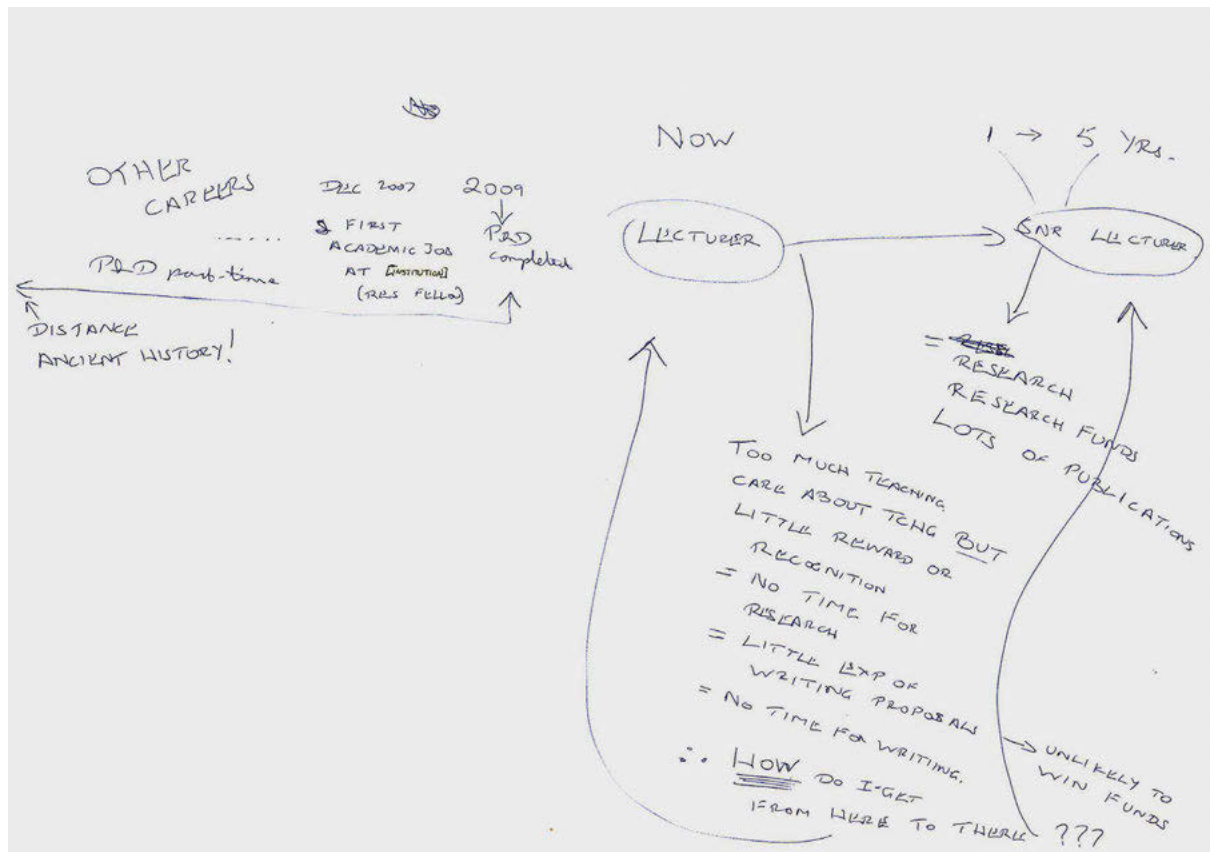 OTHER
CAREERS
.......
PhD part-time
DISTANCE
ANCIENT HISTORY!
DEC 2007
FIRST
ACADEMIC JOB
AT [INSTITUTION]
(RES FELLOW)
2009
PhD
completed
NOW
LECTURER
1 → 5 YRS.
SNR LECTURER
=
RESEARCH
RESEARCH FUNDS
LOTS OF PUBLICATIONS
TOO MUCH TEACHING
CARE ABOUT TCHG BUT
LITTLE REWARD OR
RECOGNITION
= NO TIME FOR
RESEARCH
= LITTLE EXP OF
WRITING PROPOSALS
→ UNLIKELY TO
WIN FUNDS
= NO TIME FOR WRITING.
∴ HOW DO I GET
FROM HERE TO THERE ???